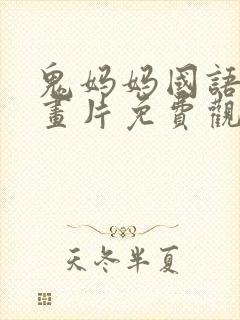 鬼妈妈國語
畫片免費觀
天冬半夏